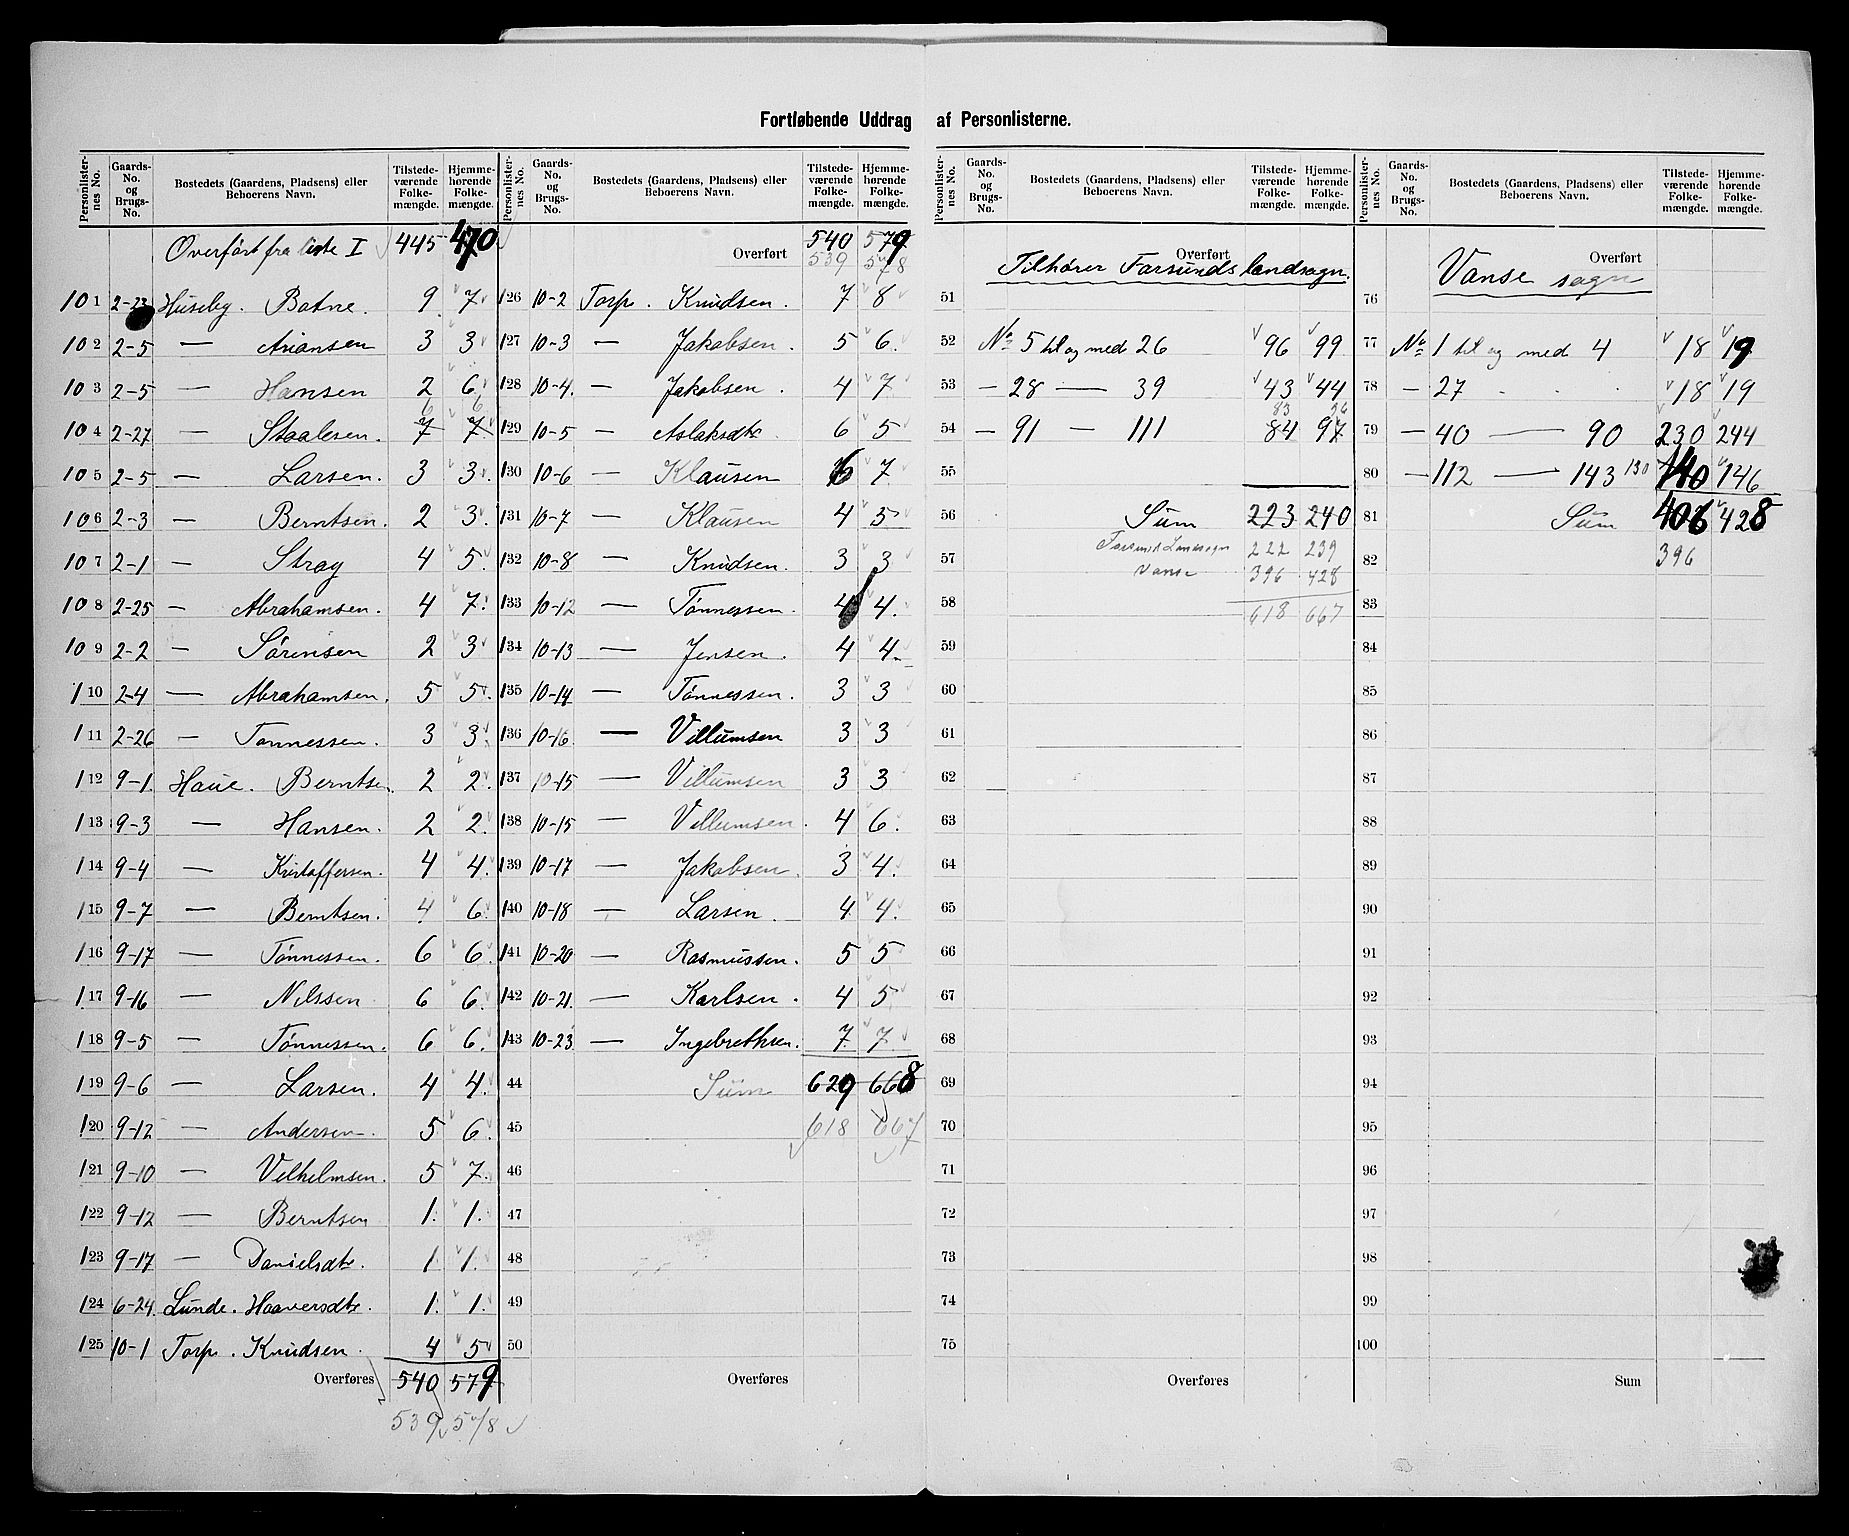 Fortløbende Uddrag af Personlisterne.
Personlister-nes No. Gaards-No. og Brugs-No. Bostedets (Gaardens, Pladsens) eller Beboerens Navn. Tilstede-værende Folke-mængde. Hjemme-hørende Folke-mængde.
Overført fra liste I 445 470
101 2-23 Huseby. Batne. 9 7
102 2-5 — Ariansen 3 3
103 2-5 — Hansen 2 6
6 6
104 2-27 — Staalesen. 7 7
105 2-5 — Larsen. 3 3
106 2-3 — Berntsen. 2 3
107 2-1 — Stray 4 5
108 2-25 — Abrahamsen. 4 7
109 2-2 — Sörensen 2 3
110 2-4 — Abrahamsen. 5 5
111 2-26 — Tönnessen. 3 3
112 9-1 Haue. Berntsen. 2 2
113 9-3 — Hansen. 2 2
114 9-4 — Kristoffersen. 4 4
115 9-7 — Berntsen. 4 6
116 9-17 — Tönnessen. 6 6
117 9-16 — Nilssen 6 6
118 9-5 — Tönnessen. 6 6
119 9-6 — Larsen. 4 4
120 9-12 — Andersen. 5 6
121 9-10 — Vilhelmsen. 5 7
122 9-12 — Berntsen 1 1
123 9-17 — Danielsdtr. 1 1
124 6-24 Lunde. Haaversdtr. 1 1
125 10-1 Torp. Knudsen. 4 5
Overføres 540 579
539 578
Personlister-nes No. Gaards-No. og Brugs-No. Bostedets (Gaardens, Pladsens) eller Beboerens Navn. Tilstede-værende Folke-mængde. Hjemme-hørende Folke-mængde.
Overført 540 579
539 578
126 10-2 Torp. Knudsen. 7 8
127 10-3 — Jakobsen. 5 6
128 10-4 — Jakobsen. 4 7
129 10-5 — Aslaksdtr. 6 5
130 10-6 — Klausen 6 7
131 10-7 — Klausen 4 5
132 10-8 — Knudsen. 3 3
133 10-12 — Tönnessen. 4 4
134 10-13 — Jensen. 4 4
135 10-14 — Tönnessen. 3 3
136 10-16 — Villumsen 3 3
137 10-15 — Villumsen 3 3
138 10-15 — Villumsen. 4 6
139 10-17 — Jakobsen. 3 4
140 10-18 — Larsen. 4 4
141 10-20 — Rasmussen. 5 5
142 10-21 — Karlsen. 4 5
143 10-23 — Ingebrethsen. 7 7
44 Sum 629 668
45 618 667
46
47
48
49
50
Overføres
Personlister-nes No. Gaards-No. og Brugs-No. Bostedets (Gaardens, Pladsens) eller Beboerens Navn. Tilstede-værende Folke-mængde. Hjemme-hørende Folke-mængde.
Overført
Tilhører Farsunds landsogn.
51
52 No 5 til og med 26 96 99
53 — 28 — 39 43 44
83 96
54 — 91 — 111 84 97
55
56 Sum 223 240
57 Farsund Landsogn 222 239
Vanse 396 428
58 618 667
59
60
61
62
63
64
65
66
67
68
69
70
71
72
73
74
75
Overføres
Personlister-nes No. Gaards-No. og Brugs-No. Bostedets (Gaardens, Pladsens) eller Beboerens Navn. Tilstede-værende Folke-mængde. Hjemme-hørende Folke-mængde.
Overført
Vanse sogn
76
77 No 1 til og med 4 18 19
78 — 27 18 19
79 — 40 — 90 230 244
80 — 112 — 143 130 140 146
81 Sum 406 428
82 396
83
84
85
86
87
88
89
90
91
92
93
94
95
96
97
98
99
100
Sum